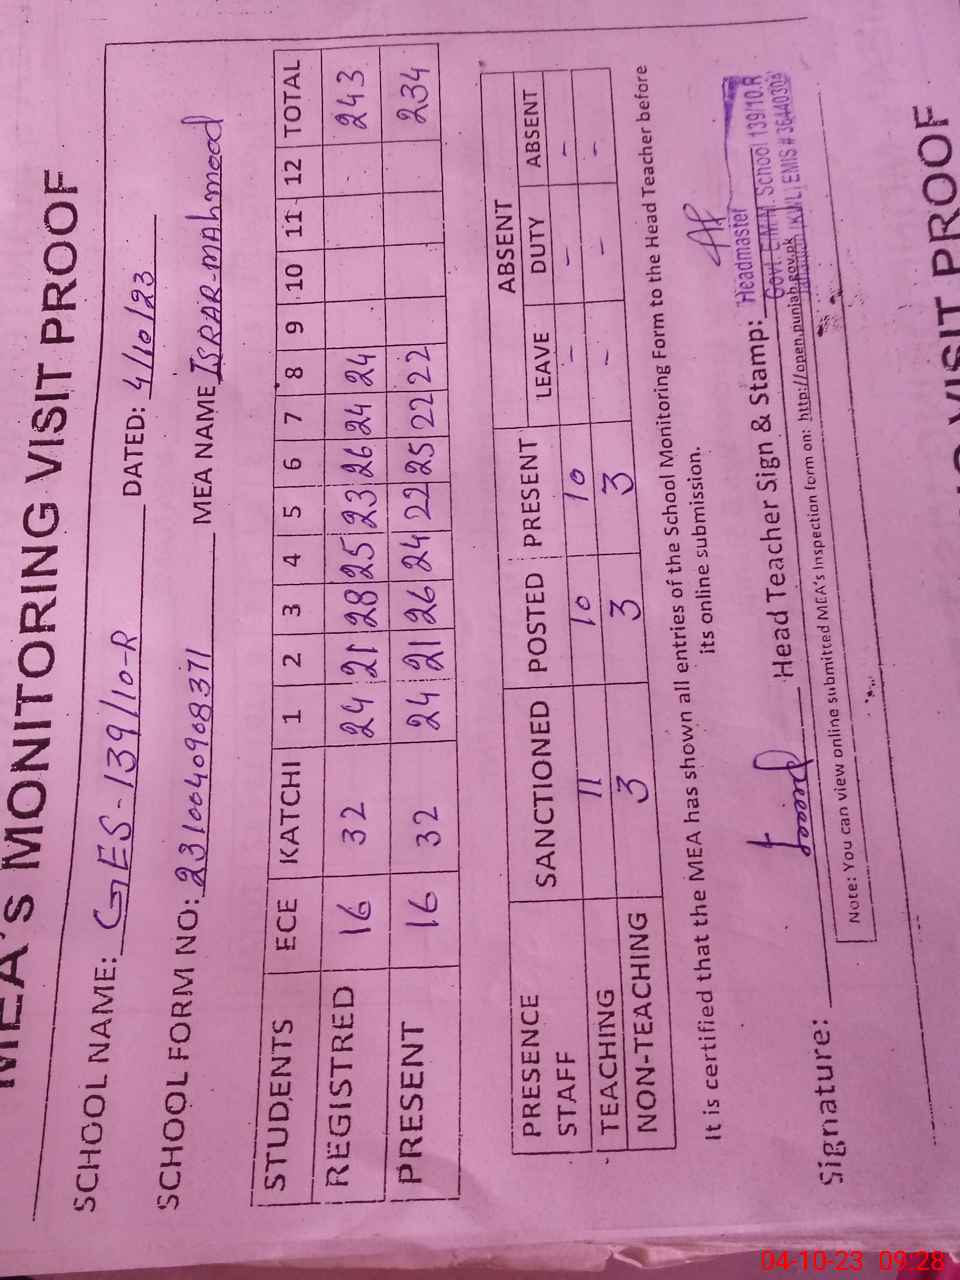 MEA'S MONITORING VISIT PROOF
SCHOOL NAME: GES-139/10-R DATED: 4/10/23
SCHOOL FORM NO: 2310040908371 MEA NAME ISRAR-MAHmood
STUDENTS ECE KATCHI 1 2 3 4 5 6 7 8 9 10 11 12 TOTAL
REGISTRED 16 32 24 21 28 25 23 26 24 24 243
PRESENT 16 32 24 21 26 24 22 25 22 22 234
PRESENCE STAFF SANCTIONED POSTED PRESENT ABSENT
LEAVE DUTY ABSENT
TEACHING 11 10 10 - - -
NON-TEACHING 3 3 3 - - -
It is certified that the MEA has shown all entries of the School Monitoring Form to the Head Teacher before
its online submission.
Signature: Head Teacher Sign & Stamp: Headmaster
Govt. E.M.M. School 139/10.R
(KWL) EMIS # 36440304
Note: You can view online submitted MEA's Inspection form on: http://open.punjab.gov.pk
VISIT PROOF
04-10-23 09:28